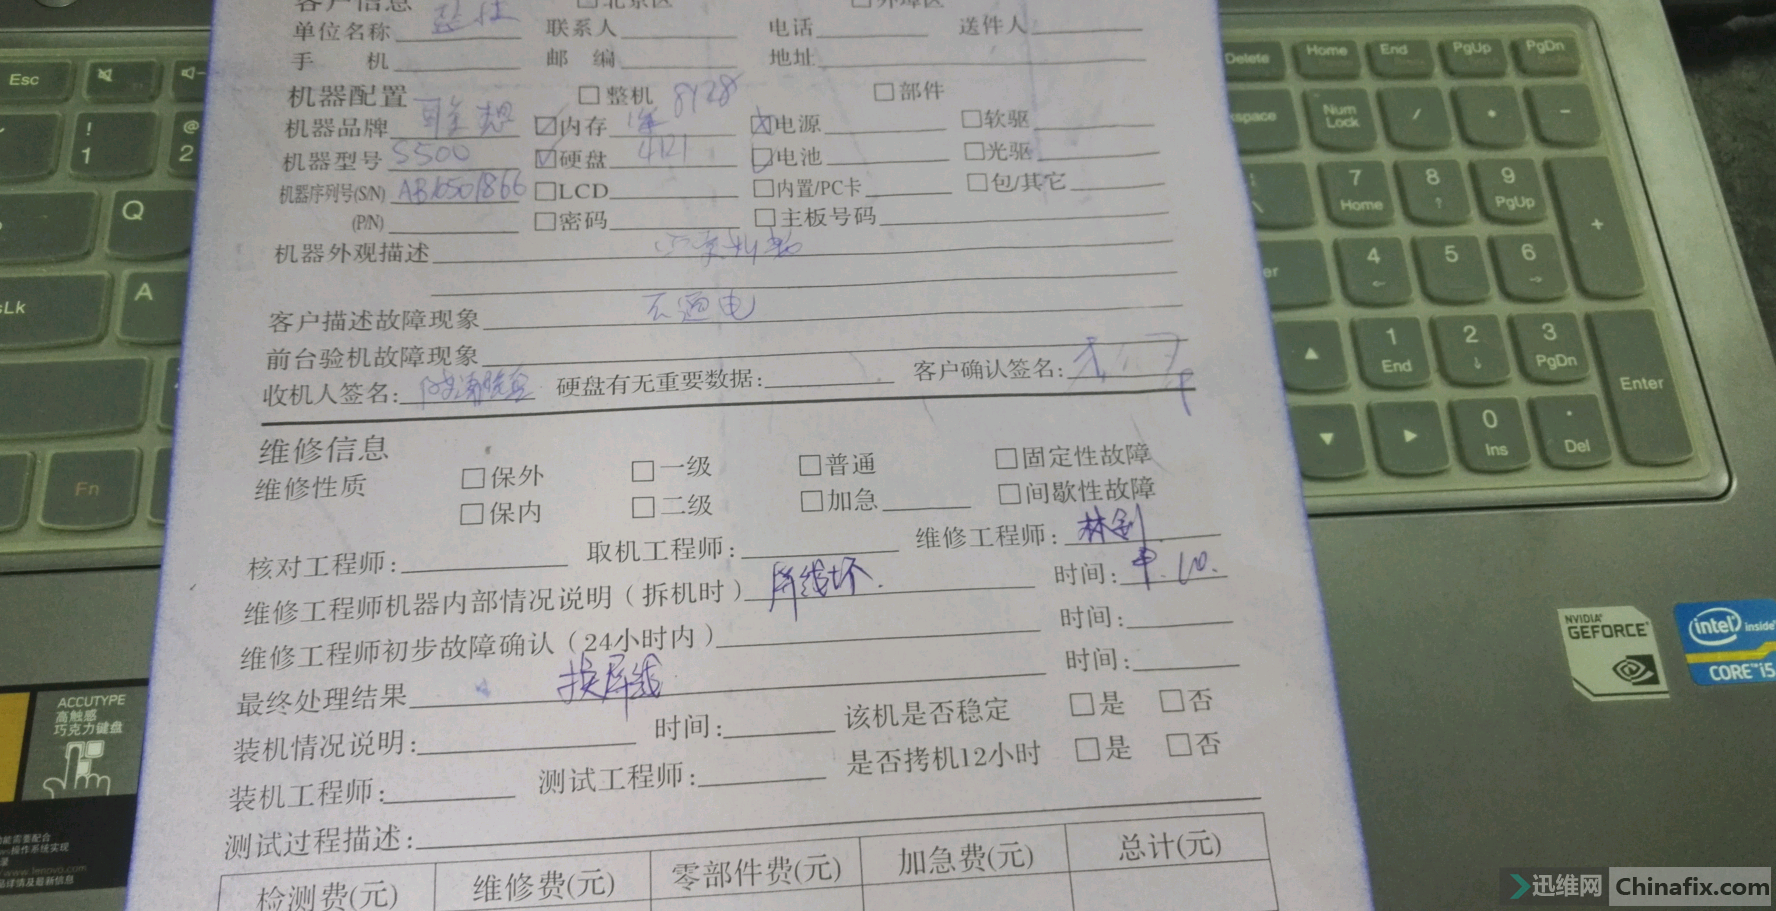 客户信息 □北京区 □外埠区
单位名称 联系人 电话 送件人
手 机 邮 编 地址
机器配置 □整机 8128 □部件
机器品牌 联想 内存 电源 □软驱
机器型号 S500 硬盘 4121 电池 □光驱
机器序列号(S/N) □LCD □内置/PC卡 □包/其它
(P/N) □密码 □主板号码
机器外观描述
客户描述故障现象 不通电
前台验机故障现象
收机人签名: 硬盘有无重要数据: 客户确认签名:
维修信息
维修性质 □保外 □一级 □普通 □固定性故障
□保内 □二级 □加急 □间歇性故障
核对工程师: 取机工程师: 维修工程师: 林剑
维修工程师机器内部情况说明(拆机时) 屏线坏. 时间:
维修工程师初步故障确认(24小时内) 时间:
最终处理结果 换屏线 时间:
装机情况说明: 时间: 该机是否稳定 □是 □否
装机工程师: 测试工程师: 是否拷机12小时 □是 □否
测试过程描述:
检测费(元) 维修费(元) 零部件费(元) 加急费(元) 总计(元)
Esc
! 1
@ 2
Q
A
Fn
Delete Home End PgUp PgDn
Num Lock / * -
7 Home 8 9 PgUp +
4 5 6
1 End 2 3 PgDn Enter
0 Ins . Del
NVIDIA GEFORCE
intel inside CORE i5
ACCUTYPE
高触感
巧克力键盘
迅维网 Chinafix.com